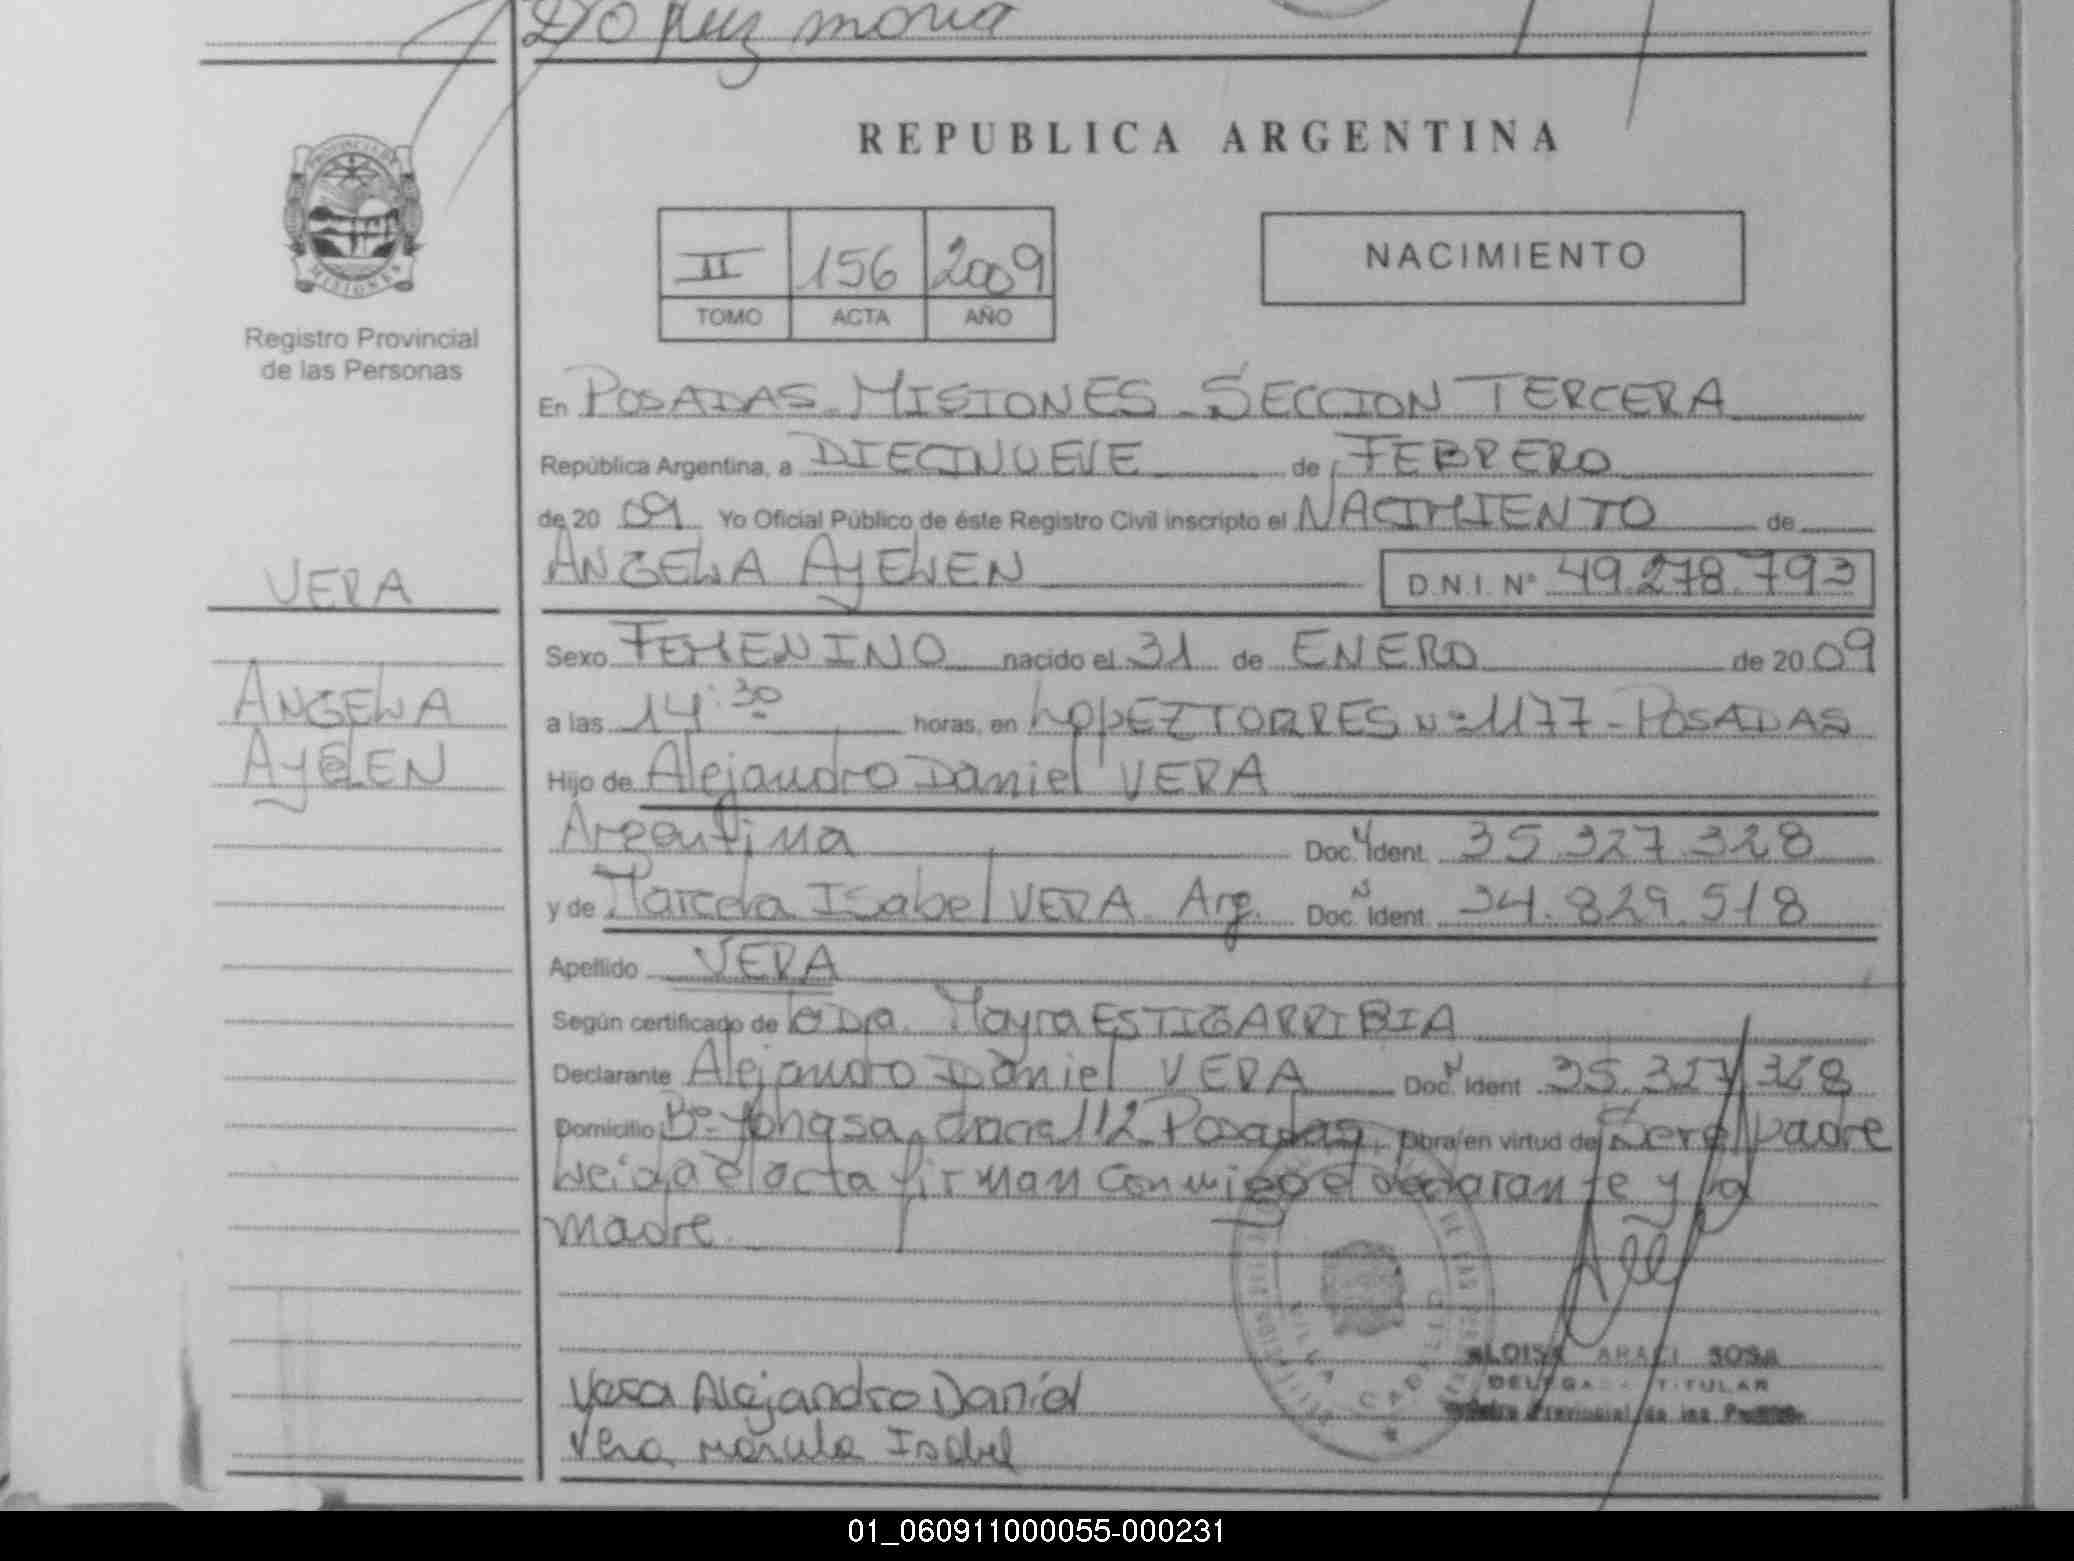 REPUBLICA ARGENTINA
II 156 2009
TOMO ACTA AÑO
NACIMIENTO
Registro Provincial
de las Personas
VERA
ANGELA
AYELEN
En POSADAS - MISIONES - SECCION TERCERA
República Argentina, a DIECINUEVE de FEBRERO
de 20 09 Yo Oficial Público de éste Registro Civil inscripto el NACIMIENTO de
ANGELA AYELEN D.N.I. Nº 49.278.793
Sexo FEMENINO nacido el 31 de ENERO de 20 09
a las 14:30 horas, en LOPEZ TORRES Nº 1177 - POSADAS
Hijo de Alejandro Daniel VERA
Argentina Doc. Ident. 35.327.328
y de Marcela Isabel VERA Arg. Doc. Ident. 34.829.518
Apellido VERA
Según certificado de la Dra. Mayra ESTIGARRIBIA
Declarante Alejandro Daniel VERA Doc. Ident. 35.327.328
Domicilio Bº Yohasa, chacra 112 Posadas Obra en virtud de Ser el padre
Leida el acta firman conmigo el declarante y la
madre
Vera Alejandro Daniel
Vera Marcela Isabel
ARACI SOSA
DELEGADA TITULAR
Provincial de las
01_060911000055-000231